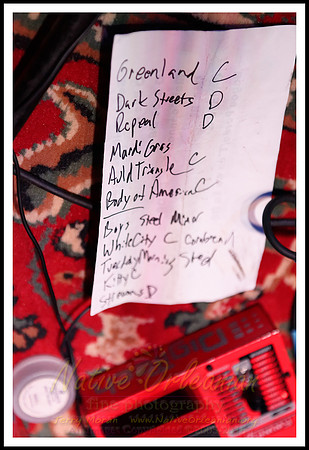 Greenland C
Dark Streets D
Repeal D
Mardi Gras
Auld Triangle C
Body of America C
Boys Steel Minor
White City C Cornbread
Tuesday Morning Steel
Kitty C
Streams D
Native Orleanian
fine photography
www.NativeOrleanian.com